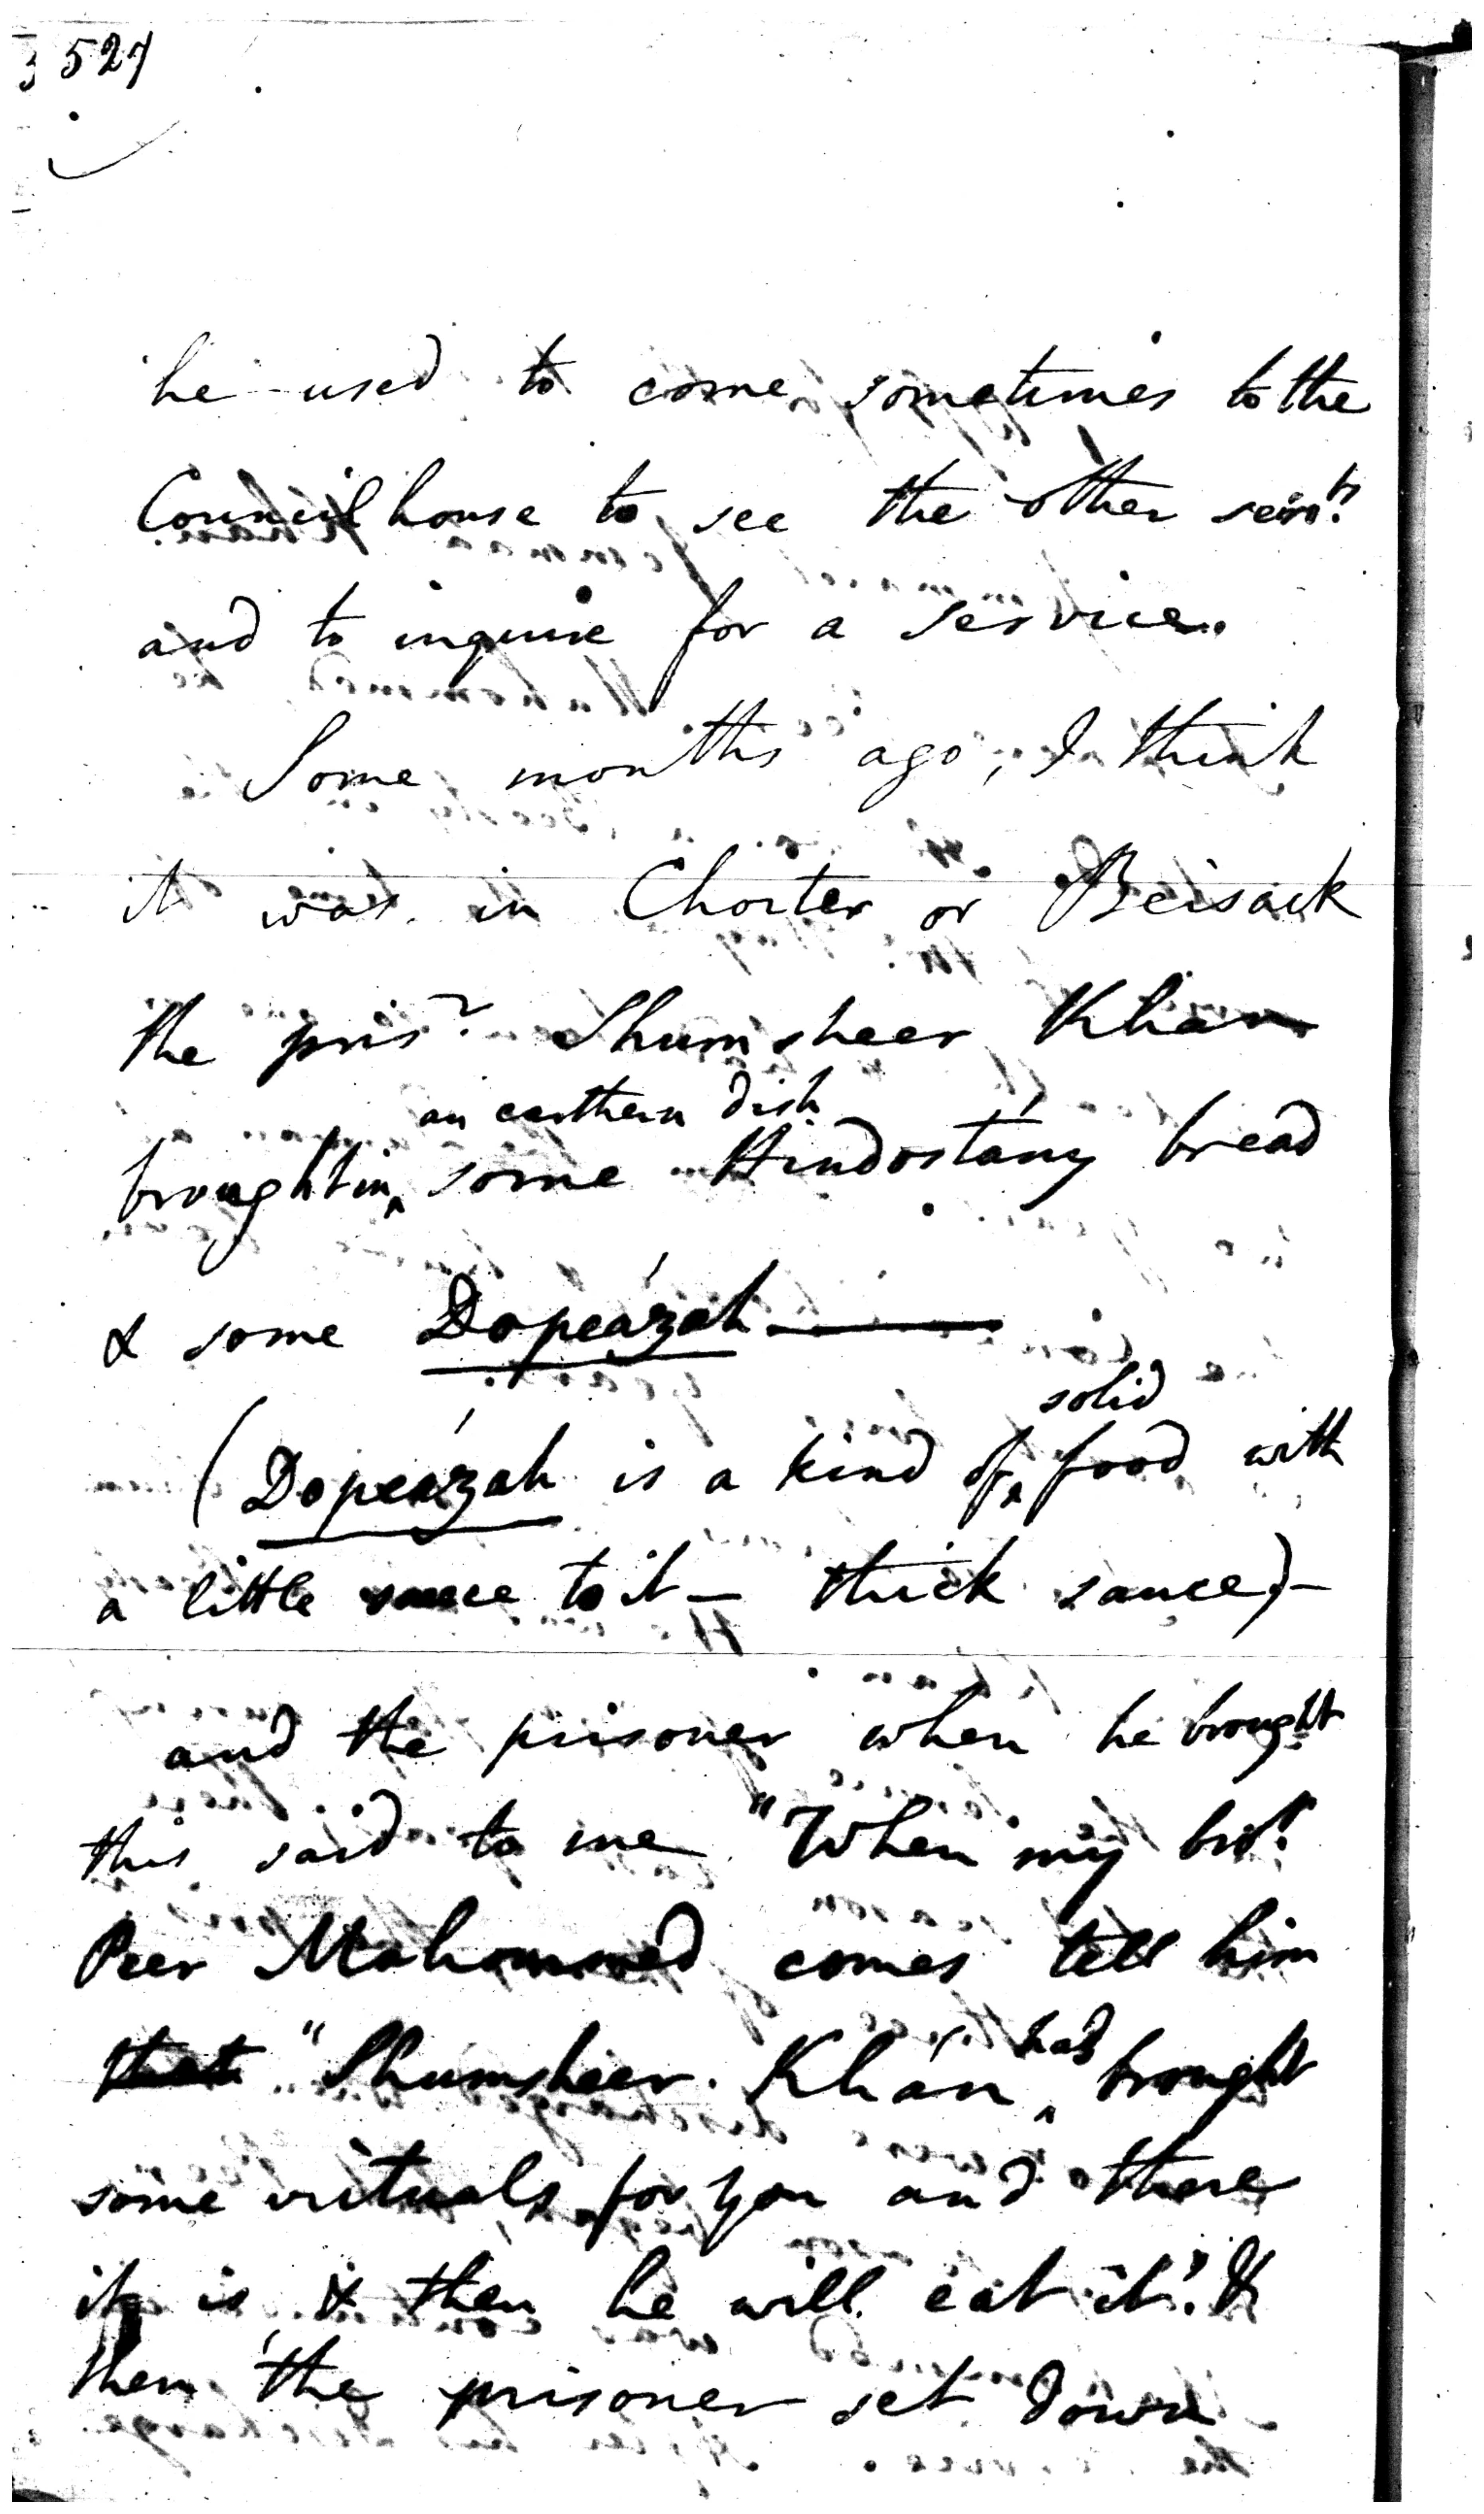 527
he used to come sometimes to the
Council house to see the other serv.ts
and to inquire for a service.
Some months ago, I think
it was in Choiter or Beisack
the pris.r Shumsheer Khan
an earthern dish
brought in ^ some Hindostány bread
& some Dopeázah
solid
(Dopeázah is a kind of ^ food with
a little sauce to it — thick sauce) —
and the prisoner when he brought
this said to me "When my bro.r
Peer Mahommed comes tell him
had
that "Shumsheer Khán ^ brought
some victuals for you and there
it is, & then he will eat it". &
then the prisoner set down